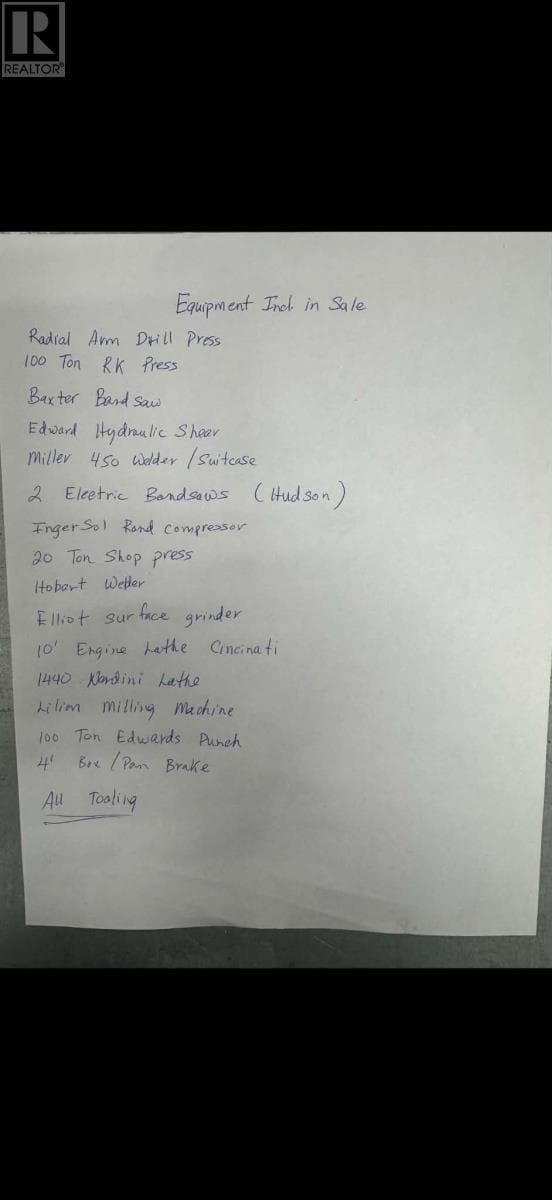 R
REALTOR®
Equipment Incl. in Sale
Radial Arm Drill Press
100 Ton RK Press
Baxter Band saw
Edward Hydraulic Shear
Miller 450 Welder / Suitcase
2 Electric Bandsaws (Hudson)
IngerSol Rand compressor
20 Ton Shop press
Hobart Welder
Elliot surface grinder
10' Engine Lathe Cincinati
1440 Nardini Lathe
Lilian Milling Machine
100 Ton Edwards Punch
4' Box / Pan Brake
All Tooling